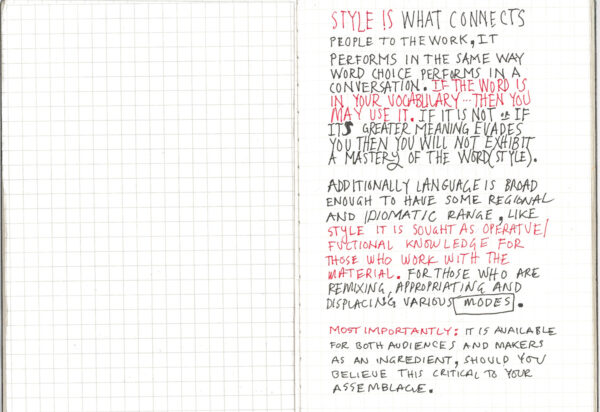 STYLE IS WHAT CONNECTS
PEOPLE TO THE WORK, IT
PERFORMS IN THE SAME WAY
WORD CHOICE PERFORMS IN A
CONVERSATION. IF THE WORD IS
IN YOUR VOCABULARY... THEN YOU
MAY USE IT. IF IT IS NOT OR IF
ITS GREATER MEANING EVADES
YOU THEN YOU WILL NOT EXHIBIT
A MASTERY OF THE WORD (STYLE).
ADDITIONALLY LANGUAGE IS BROAD
ENOUGH TO HAVE SOME REGIONAL
AND IDIOMATIC RANGE, LIKE
STYLE IT IS SOUGHT AS OPERATVE/
FUCTIONAL KNOWLEDGE FOR
THOSE WHO WORK WITH THE
MATERIAL. FOR THOSE WHO ARE
REMIXING, APPROPRIATING AND
DISPLACING VARIOUS MODES.
MOST IMPORTANTLY: IT IS AVAILABLE
FOR BOTH AUDIENCES AND MAKERS
AS AN INGREDIENT, SHOULD YOU
BELIEVE THIS CRITICAL TO YOUR
ASSEMBLAGE.